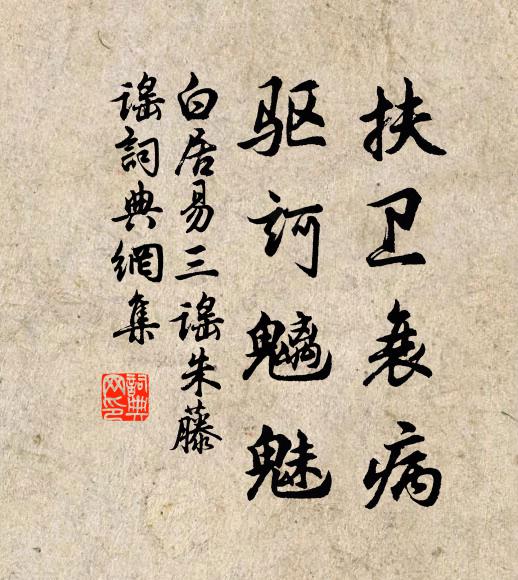 扶卫衰病
驱诃魑魅
白居易三谣朱藤
谣詞典網集
詞典
网印